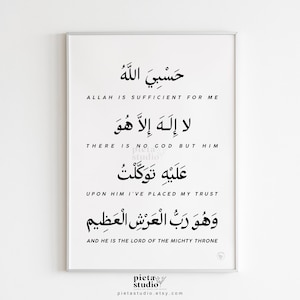 حَسْبِيَ اللَّهُ
ALLAH IS SUFFICIENT FOR ME
لا إِلَـهَ إِلاَّ هُوَ
THERE IS NO GOD BUT HIM
pieta
studio
عَلَيْهِ تَوَكَّلْتُ
UPON HIM I'VE PLACED MY TRUST
وَهُوَ رَبُّ الْعَرْشِ الْعَظِيمِ
AND HE IS THE LORD OF THE MIGHTY THRONE
pieta
studio
pietastudio.etsy.com